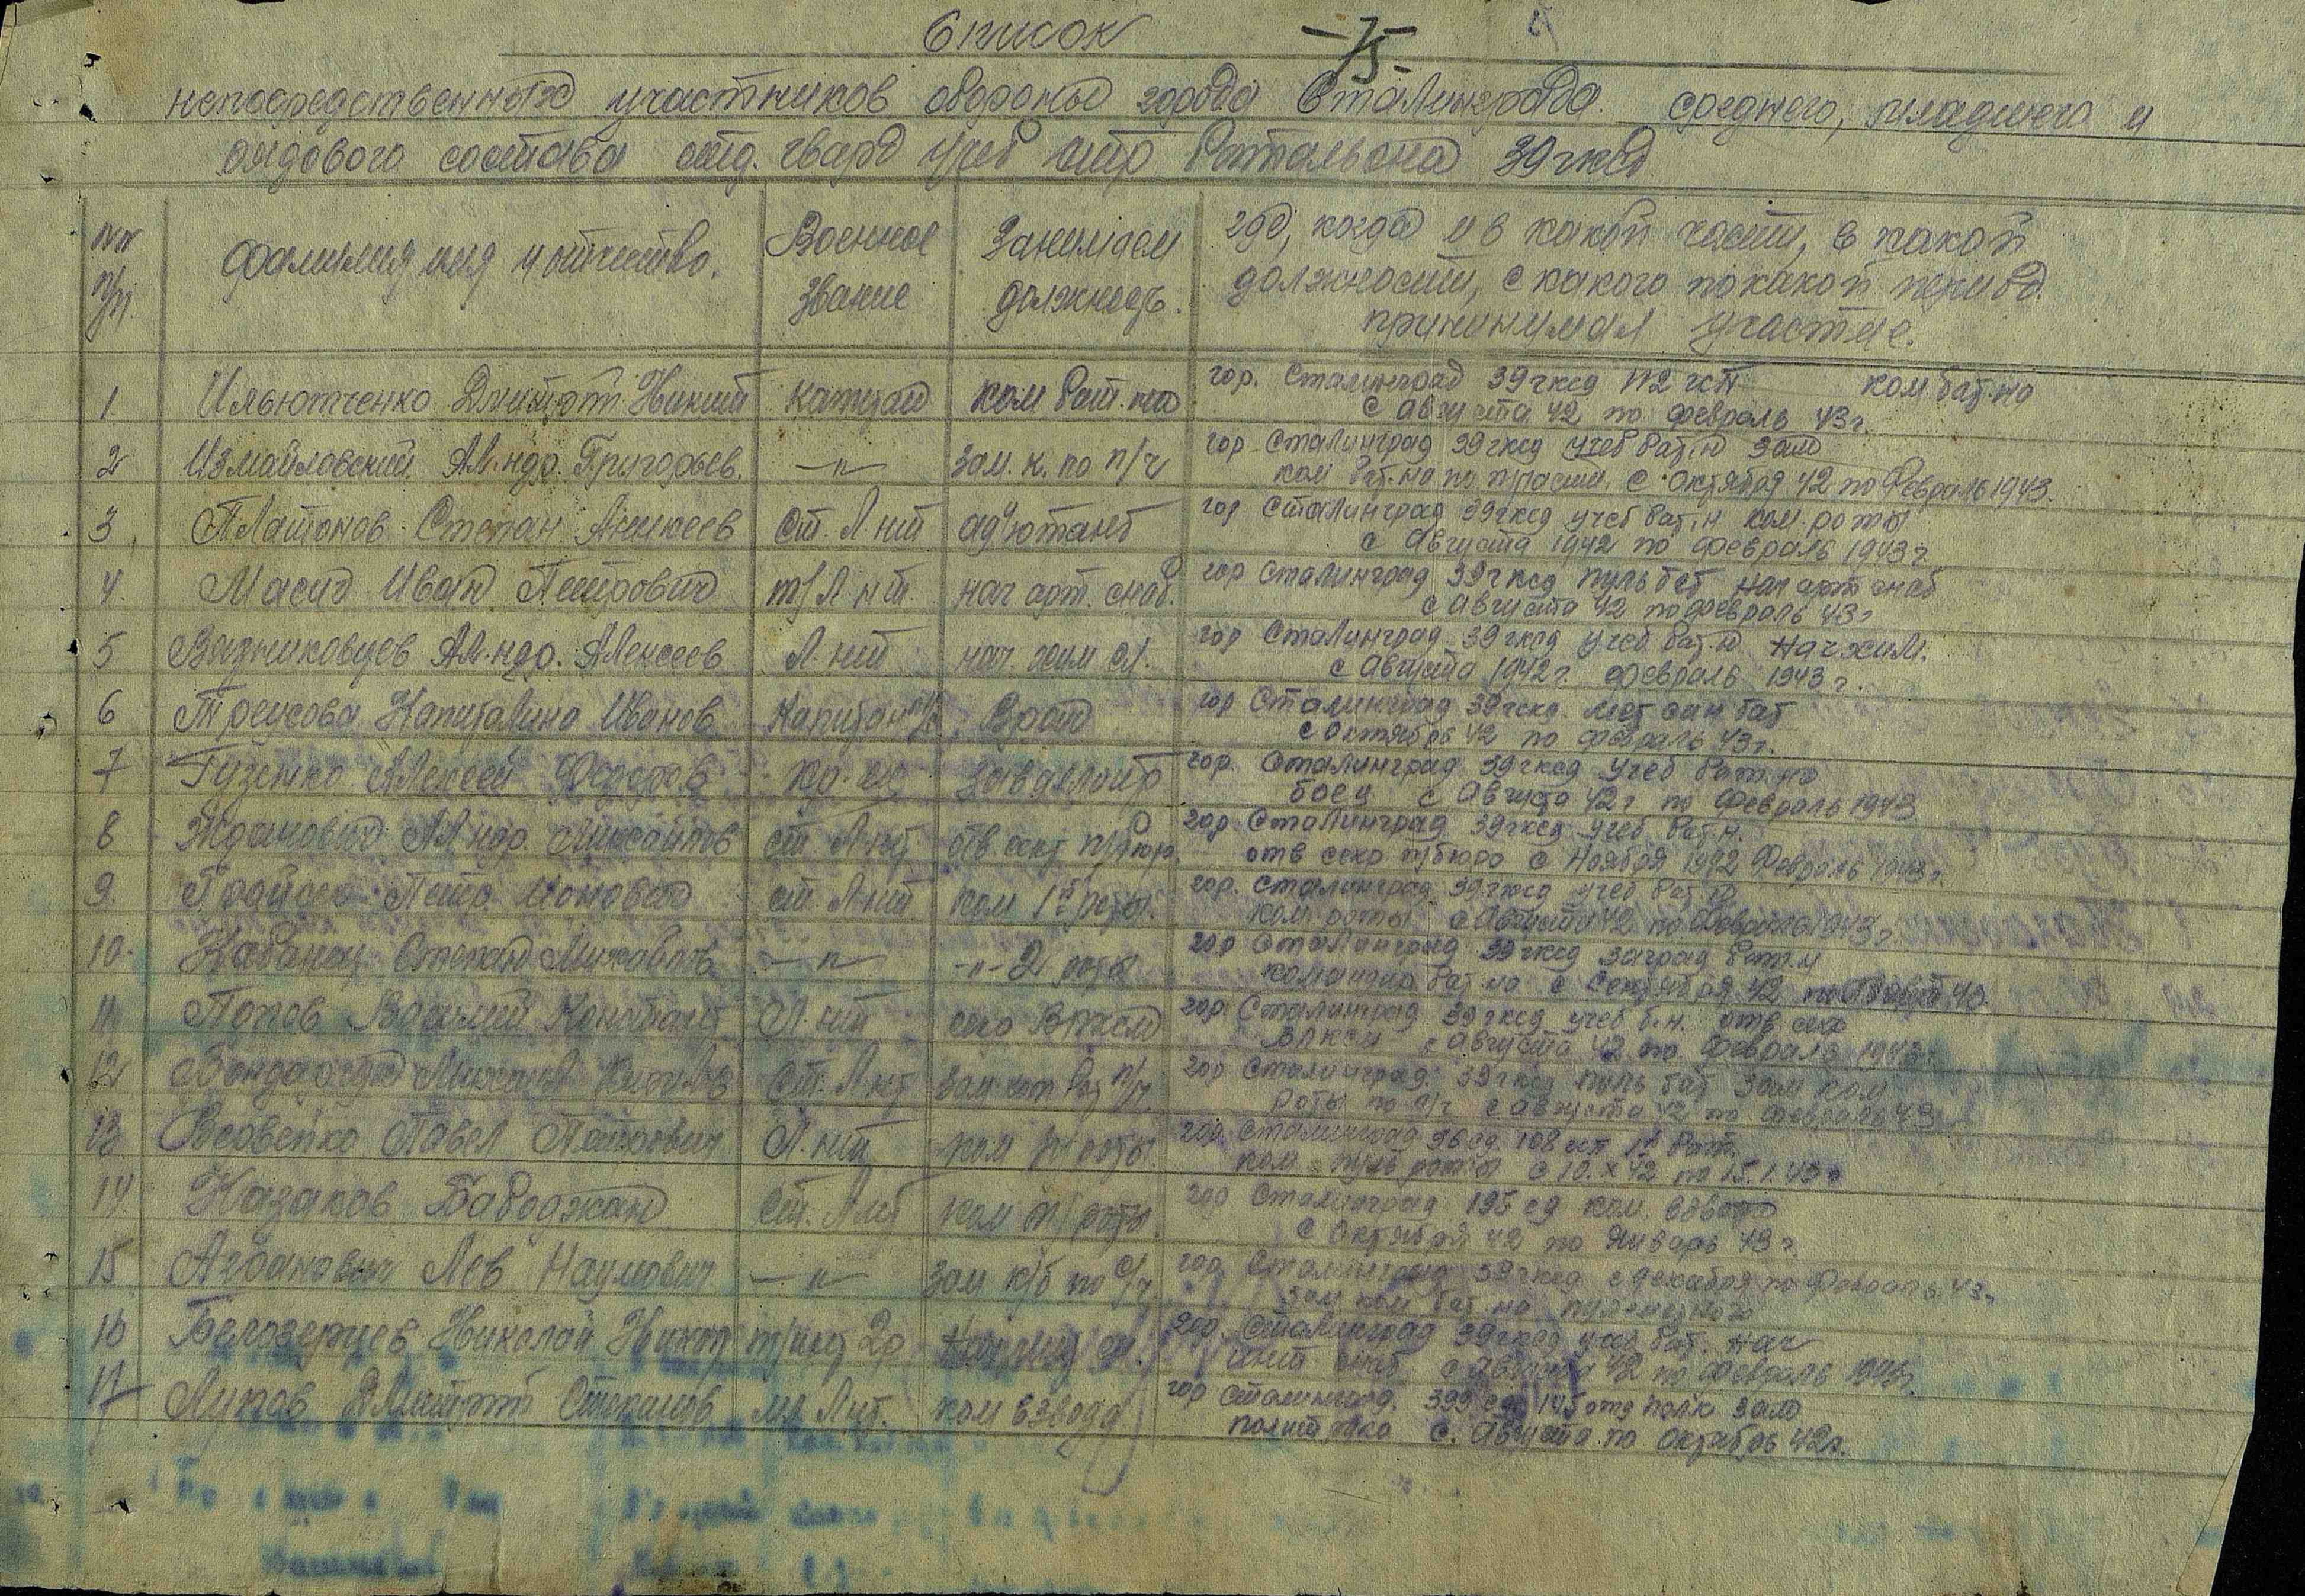 Список
-75-
непосредственных участников обороны города Сталинграда среднего, младшего и
рядового состава отд. гвард учеб стр батальона 39 гксд
NN п/п. Фамилия имя и отчество. Военное звание Занимаем должность. где, когда и в какой части, в какой
должности, с какого по какой период.
принимал участие.
1 Ильютченко Дмитрий Никит капитан ком бат-на гор. Сталинград 39 гксд 112 гсп ком бат-на
с Августа 42 по февраль 43 г.
2 Измайловский Ал-ндр. Григорьев. -"- зам. к. по п/ч гор Сталинград 39 гксд учеб бат-н зам
ком бат-на по п/части с Октября 42 по Февраль 1943.
3 Платонов Степан Алексеев ст. Л-нт адъютант гор Сталинград 39 гксд учеб бат-н ком роты
с Августа 1942 по февраль 1943 г.
4. Масич Иван Петрович т/Л-нт. нач арт. снаб. гор Сталинград 39 гксд пуль бат нач арт снаб
с Августа 42 по февраль 43 г
5 Вязниковцев Ал-ндр. Алексеев Л-нт нач. хим сл. гор Сталинград 39 гксд учеб бат-н нач хим.
с Августа 1942 г. февраль 1943 г.
6 Трусова Капиталина Иванов Капитан м/с Врач гор Сталинград 39 гксд. мед сан бат
с Октября 42 по февраль 43 г.
7 Гузенко Алексей Федоров гор. Сталинград 39 гксд учеб бат-на
боец с Августа 42 г по Февраль 1943
8 Жданович Ал-ндр Михайлов ст. Л-нт отв секр п/бюро гор Сталинград 39 гксд учеб бат-н.
отв секр п/бюро с Ноября 1942 Февраль 1943 г.
9. Петр ст Л-нт ком 1й роты. гор. Сталинград 39 гксд учеб бат-н
ком. роты с Августа 42 по Февраль 1943 г.
10. Кабанец Степан Михайлов -"- -"- 2 роты гор Сталинград 39 гксд заград бат-н
командир бат-на с Сентября 42 по
11 Попов Василий Констант Л-нт секр ВЛКСМ гор Сталинград 39 гксд учеб б-н. отв секр
ВЛКСМ с Августа 42 по Февраль 1943 г.
12 Бондарев Михаил ст. Л-нт зам ком рот п/ч. гор Сталинград. 39 гксд пуль бат зам ком
роты по п/ч с Августа 42 по февраль 43
13 Вдовенко Павел Петрович Л-нт ком п/роты. гор Сталинград 36 сд 108 гсп 1й бат.
ком пуль роты с 10.X 42 по 15.1.43 г
14. Назаров Бабаджан ст. Л-нт ком п/роты. гор Сталинград 195 сд ком. взвода
с Октября 42 по Январь 43 г.
15 Агранович Лев Наумович -"- зам к/б по с/ч гор Сталинград 39 гксд с декабря по Февраль 43 г.
зам ком бат-на пулеметного
16 Белозерцев Николай т/инт 2р гор Сталинград 39 гксд учеб бат. нач
инт снаб с Августа 42 по Февраль 1943 г.
17 Лупов Дмитрий Степанов мл Лнт. ком взвода гор Сталинград. 399 сд. 145 отд полк зам
политрука с. Августа по Октябрь 42 г.